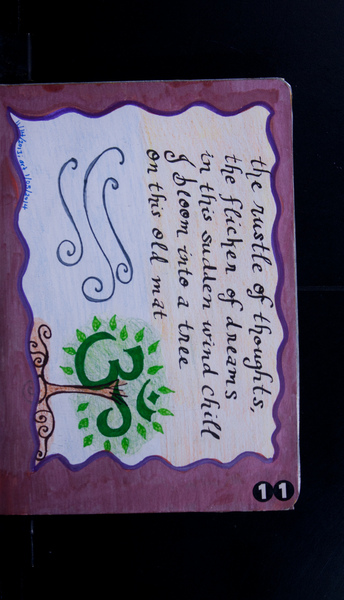 the rustle of thoughts,
the flicker of dreams
in this sudden wind chill
I bloom into a tree
on this old mat
ॐ
11